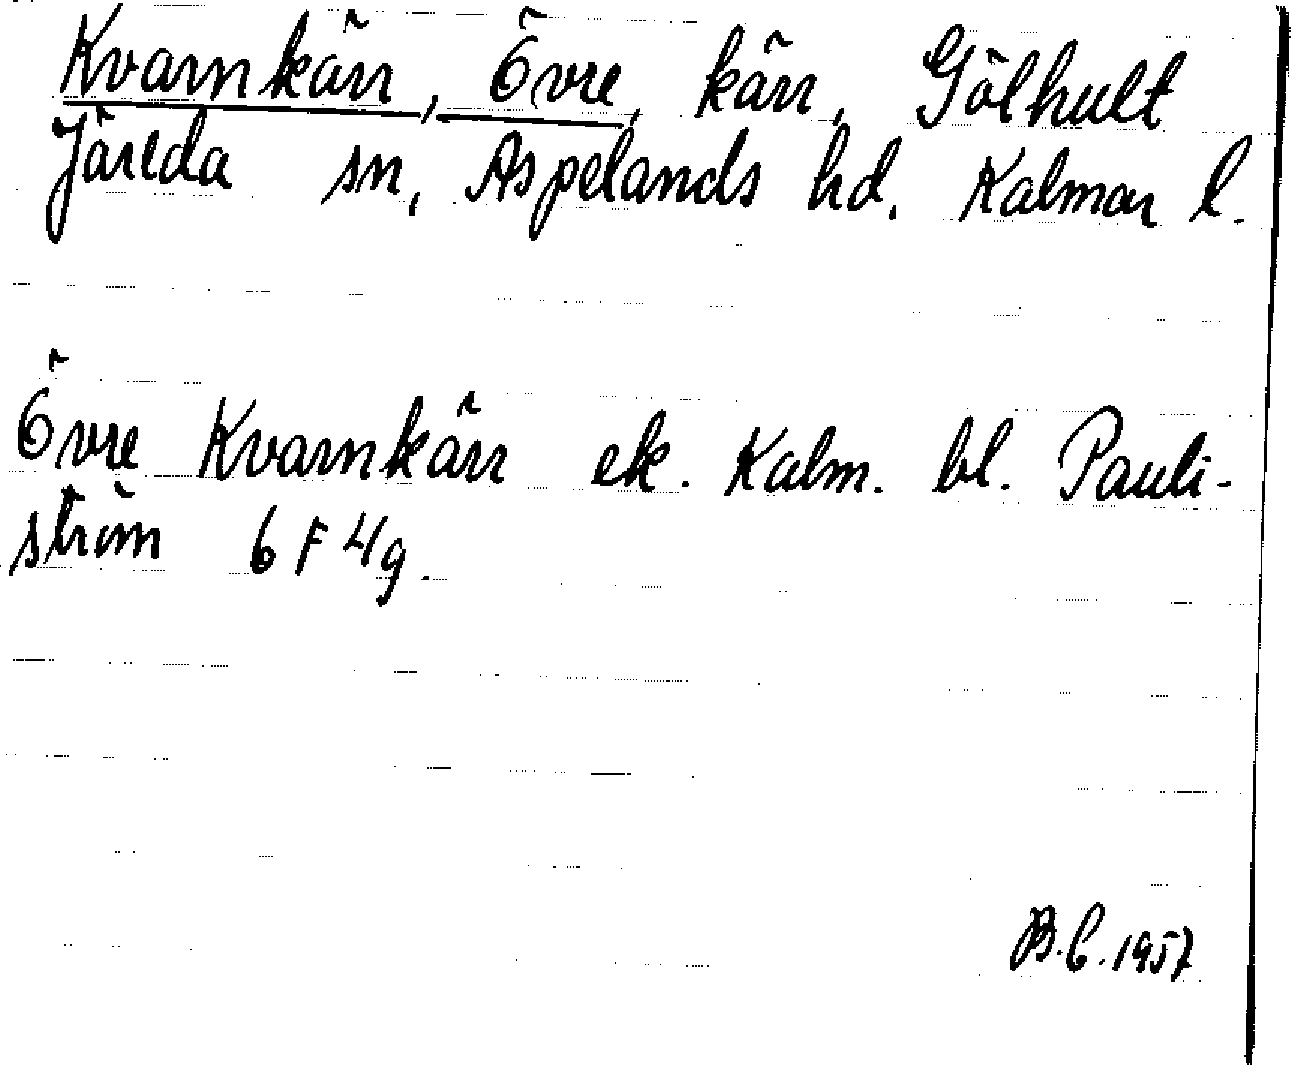 Kvarnkärr, Övre, kärr, Gölhult
Järeda sn, Aspelands hd. Kalmar l.
Övre Kvarnkärr ek. Kalm. bl. Pauli-
ström 6 F 4g.
B.C. 1957